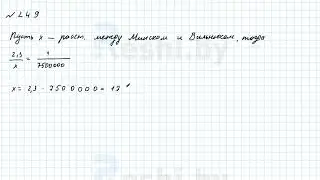 № 249
Пусть x — расст. между Минском и Вильнюсом, тогда
2,3/x = 1/7500000
x = 2,3 · 7500000 = 17